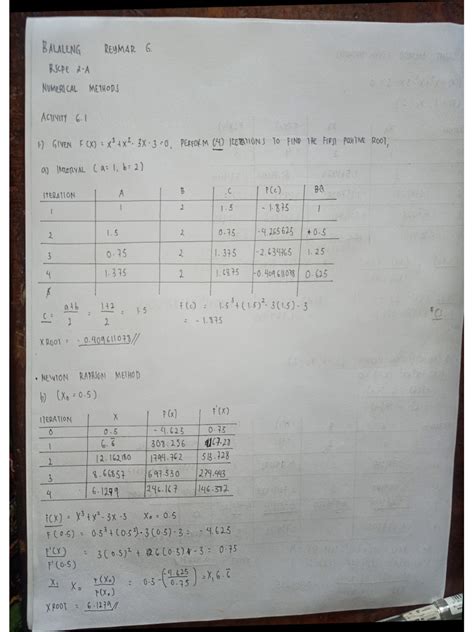 BALALENG REYMAR G.
BSCPE 2-A
NUMERICAL METHODS
ACTIVITY 6.1
1) GIVEN F(X) = X³+X²-3X-3=0, PERFORM (4) ITERATIONS TO FIND THE FIRST POSITIVE ROOT,
a) INTERVAL (a=1, b=2)
ITERATION A B C F(C)
1 1 2 1.5 -1.875 1
2 1.5 2 0.75 -4.265625 0.5
3 0.75 2 1.375 -2.634765 1.25
4 1.375 2 1.6875 -0.409611078 0.625
C = a+b/2 = 1+2/2 = 1.5 F(c) = 1.5³+(1.5)²-3(1.5)-3
= -1.875
XROOT = -0.409611073//
• NEWTON RAPHSON METHOD
b) (X₀=0.5)
ITERATION X F(X) F'(X)
0 0.5 -4.625 0.75
1 6.6 308.296 167.28
2 12.162180 1794.762 513.728
3 8.66857 697.530 274.443
4 6.1279 246.167 146.382
F(X) = X³+X²-3X-3 X₀=0.5
F(0.5) = 0.5³+(0.5)²-3(0.5)-3 = -4.625
F'(X) = 3(0.5)²+2(0.5)-3 = 0.75
F'(0.5)
X₁ X₀ F(X₀)/F(X₀) = 0.5-(4.625/0.75) = X₁ 6.6
XROOT = 6.1279//